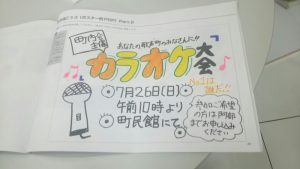 町内会
主催
あなたの歌声を町のみなさんに!!
カラオケ大会
No.1は
誰だ!!
7月26日(日)
午前10時より
町民館にて
参加ご希望
の方は阿部
までお申し込み
ください